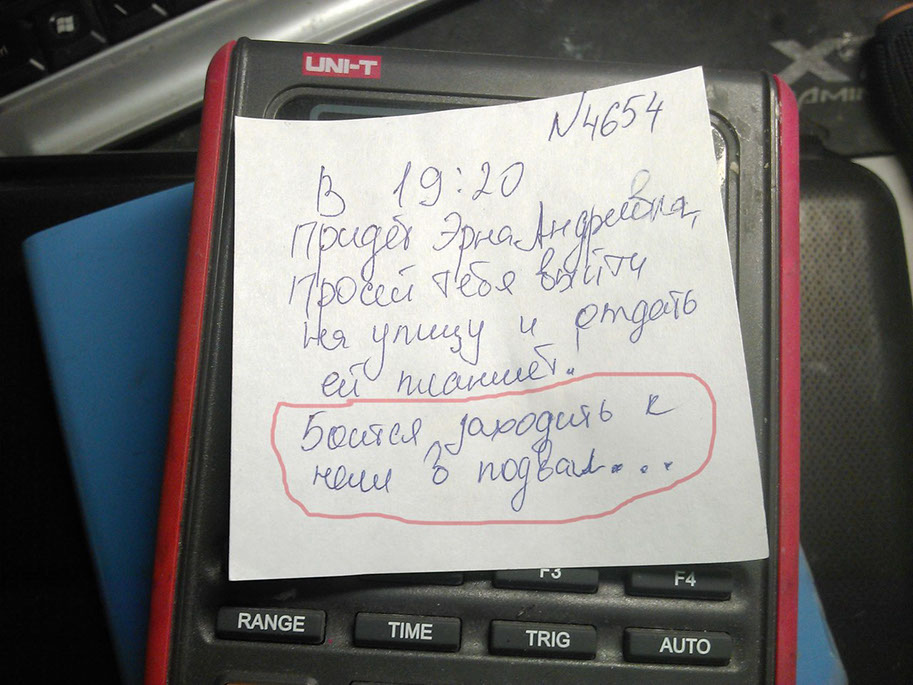 UNI-T
N4654
В 19:20
придёт Эрна Андреевна,
просит тебя выйти
на улицу и отдать
ей планшет..
Боится заходить к
нам в подвал....
F3
F4
RANGE
TIME
TRIG
AUTO